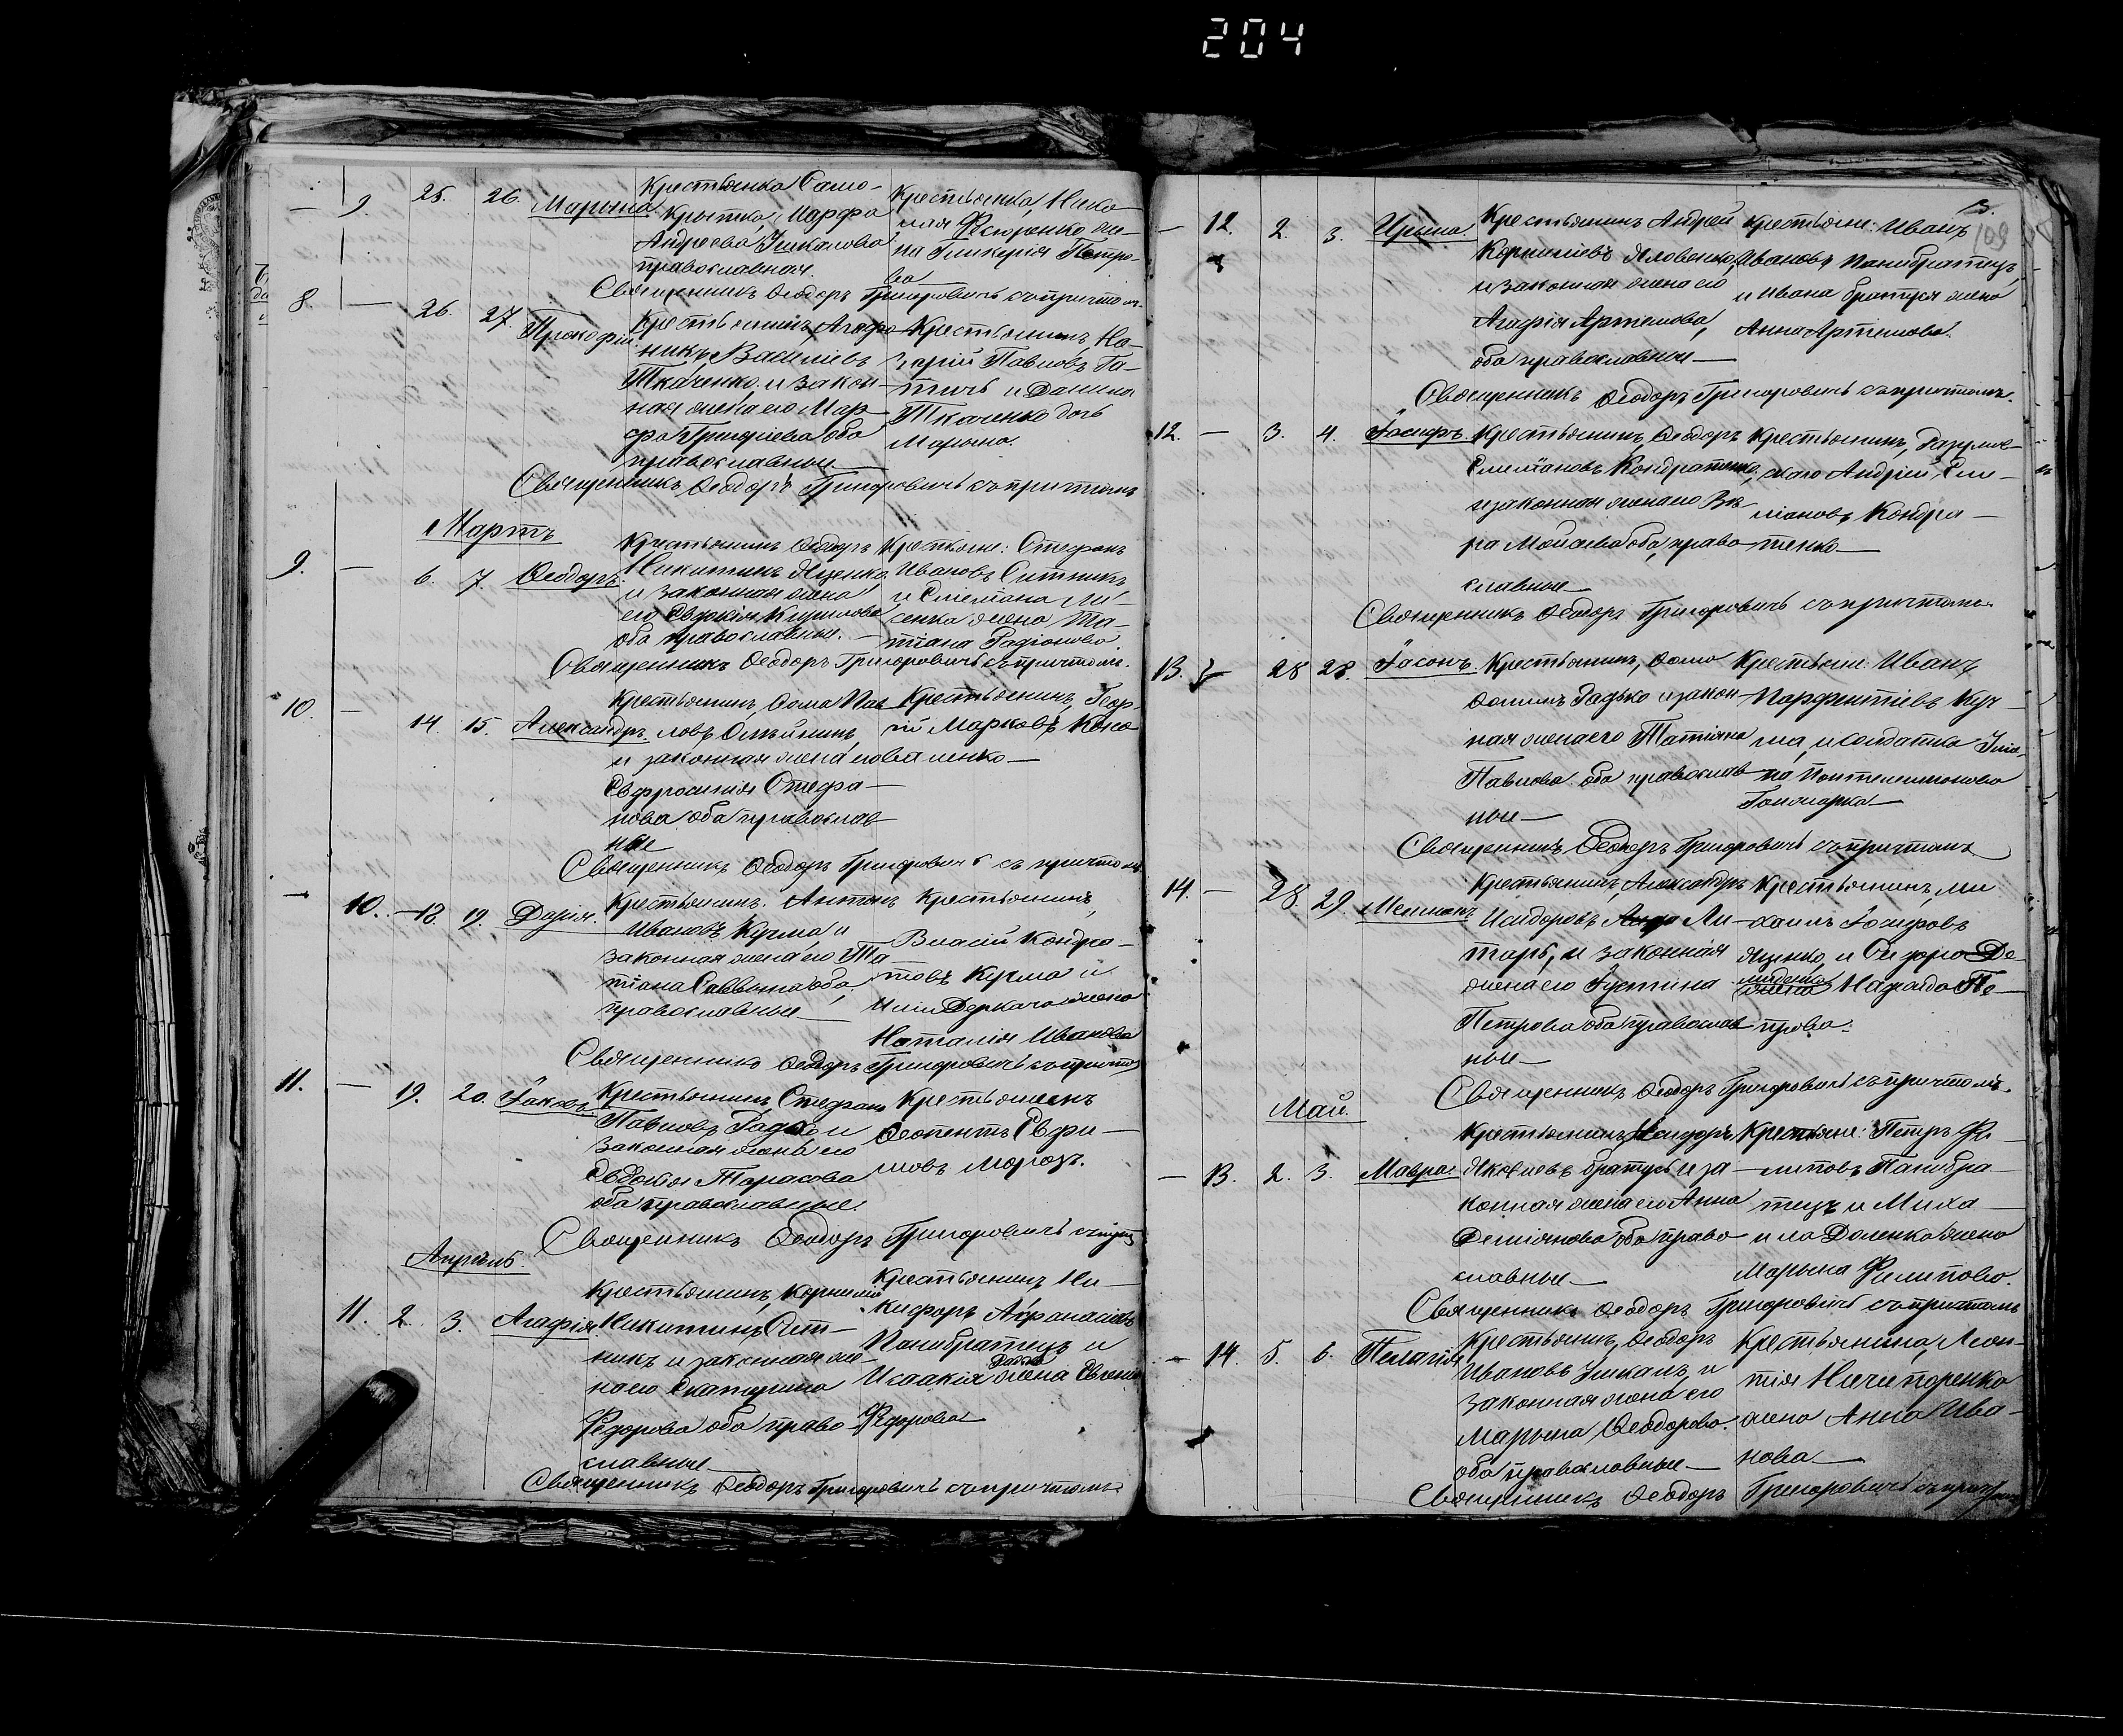 204
9. 25. 26. Марына. Крестьянка Само-
крытка, Марфа
Андреева Ушкалова
православная.
Крестьянка Нико
лая Фесюренко же-
на Гликерія Петро-
ва
Священникъ Ѳеодоръ Григоровичъ съ причтомъ.
8. — 26. 27. Прокофій Крестьянинъ, Агафо
никъ Василіевъ
Ткаченко и закон
ная жена его Мар
фа Григоріева оба
православные
Крестьянинъ На-
зарій Павловъ
и Данила
Ткаченко дочь
Марына.
Священникъ Ѳеодоръ Григоровичъ съ причтомъ
Мартъ
9. — 6. 7. Ѳеодоръ. Крестьянинъ Ѳеодоръ
Никитинъ Яценко
и законная жена
его Евдокія Кирилова
оба православные.
Крестьяне: Стефанъ
Ивановъ Ситникъ
и Емеліана Ли-
сенка жена Та-
тіана Радіонова.
Священникъ Ѳеодоръ Григоровичъ съ причтомъ.
10. — 14. 15. Александръ. Крестьянинъ, Ѳома Пав
ловъ Олѣйникъ
и законная жена
Евфросинія Стефа-
нова оба православ
ные
Крестьянинъ, Геор-
гій Марковъ Коно
новаленко
Священникъ Ѳеодоръ Григоровичъ съ причтомъ.
— 10. 18. 19. Дарія. Крестьянинъ Антонъ
Ивановъ Кучма, и
законная жена его Та
тіана Саввина оба
православные
Крестьянинъ,
Власій Кондра-
товъ Кучма и
Иліи Деркача жена
Наталія Иванова
Священникъ Ѳеодоръ Григоровичъ съ причтом
11. — 19. 20. Іаковъ Крестьянинъ Стефанъ
Павловъ Радько и
законная жена его
Евдокія Тарасова
оба православные.
Крестьянинъ
Ѳеопентъ Евфи-
мовъ Морозъ.
Священникъ Ѳеодоръ Григоровичъ съ прич
Апрѣль.
11. 2. 3. Агафія. Крестьянинъ, Корнилій
Никитинъ Сит-
никъ и законная же-
на его Екатерина
Федорова оба право
славные
Крестьянинъ Ни-
кифоръ Аѳанасіевъ
Панибратецъ и
Исаакія Радька жена Евгенія
Федорова
Священникъ Ѳеодоръ Григоровичъ съ причтомъ
109
— 12. 2. 3. Ирына. Крестьянинъ Андрей
Корниліевъ Яловенко,
и законная жена его
Агафія Артемова,
оба православные
Крестьяне: Иванъ
Ивановъ Панибратецъ,
и Ивана Братуся жена
Анна Артемова.
Священникъ Ѳеодоръ Григоровичъ съ причтомъ.
12. — 3. 4. Іосифъ. Крестьянинъ, Ѳеодоръ
Емеліановъ Кондратенко,
и законная жена его Вѣ
ра Мойсеева оба право
славные
Крестьянинъ,
Андрей Еме-
ліановъ Кондра-
тенко
Священникъ Ѳеодоръ Григоровичъ съ причтомъ.
13. — 28 28. Іасонъ. Крестьянинъ, Ѳома
Ѳоминъ Радько и закон
ная жена его Татіана
Павлова оба православ
ные
Крестьяне: Иванъ
Парфентіевъ Куч-
ма, и солдатка Улья
на Понтелимонова
Гончарка
Священникъ Ѳеодоръ Григоровичъ съ причтомъ
14. — 28. 29. Крестьянинъ, Александръ
Исидоровъ Ли-
тарь, и законная
жена его Іустина
Петрова оба православ
ные
Крестьянинъ, Ми
хаилъ Іосифовъ
Яценко, и Сидора Де-
Петрова.
Священникъ Ѳеодоръ Григоровичъ съ причтомъ.
Май.
— 13. 2. 3. Мавра. Крестьянинъ, Исидоръ
Яковлевъ Братусь и за
конная жена его Анна
Деміанова оба право
славные
Крестьяне: Петръ Фи
липовъ Панибра
тецъ и Миха
ила Доленка жена
Марына Филипова.
Священникъ Ѳеодоръ Григоровичъ съ причтомъ
— 14. 5. 6. Пелагія Крестьянинъ, Ѳеодоръ
Ивановъ Ушкалъ, и
законная жена его
Марына Ѳеодорова.
оба православные
Крестьянина, Леон-
тія Ничипоренко
жена Анна Ива-
нова
Священникъ Ѳеодоръ Григоровичъ съ причтомъ